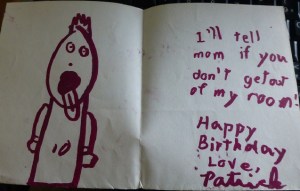 I'll tell
mom if you
don't get out
of my room!
Happy
Birthday
Love,
Patrick
10